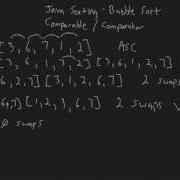 Java Sorting - Bubble Sort
Comparable / Comparator
[3, 6, 7, 1, 2] ASC
[3, 6, 1, 7, 2] [3, 6, 1, 2, 7]
6, 2, 7] [3, 1, 2, 6, 7] 2 swaps
6, 7] [1, 2, 3, 6, 7] 2 swaps
0 swaps